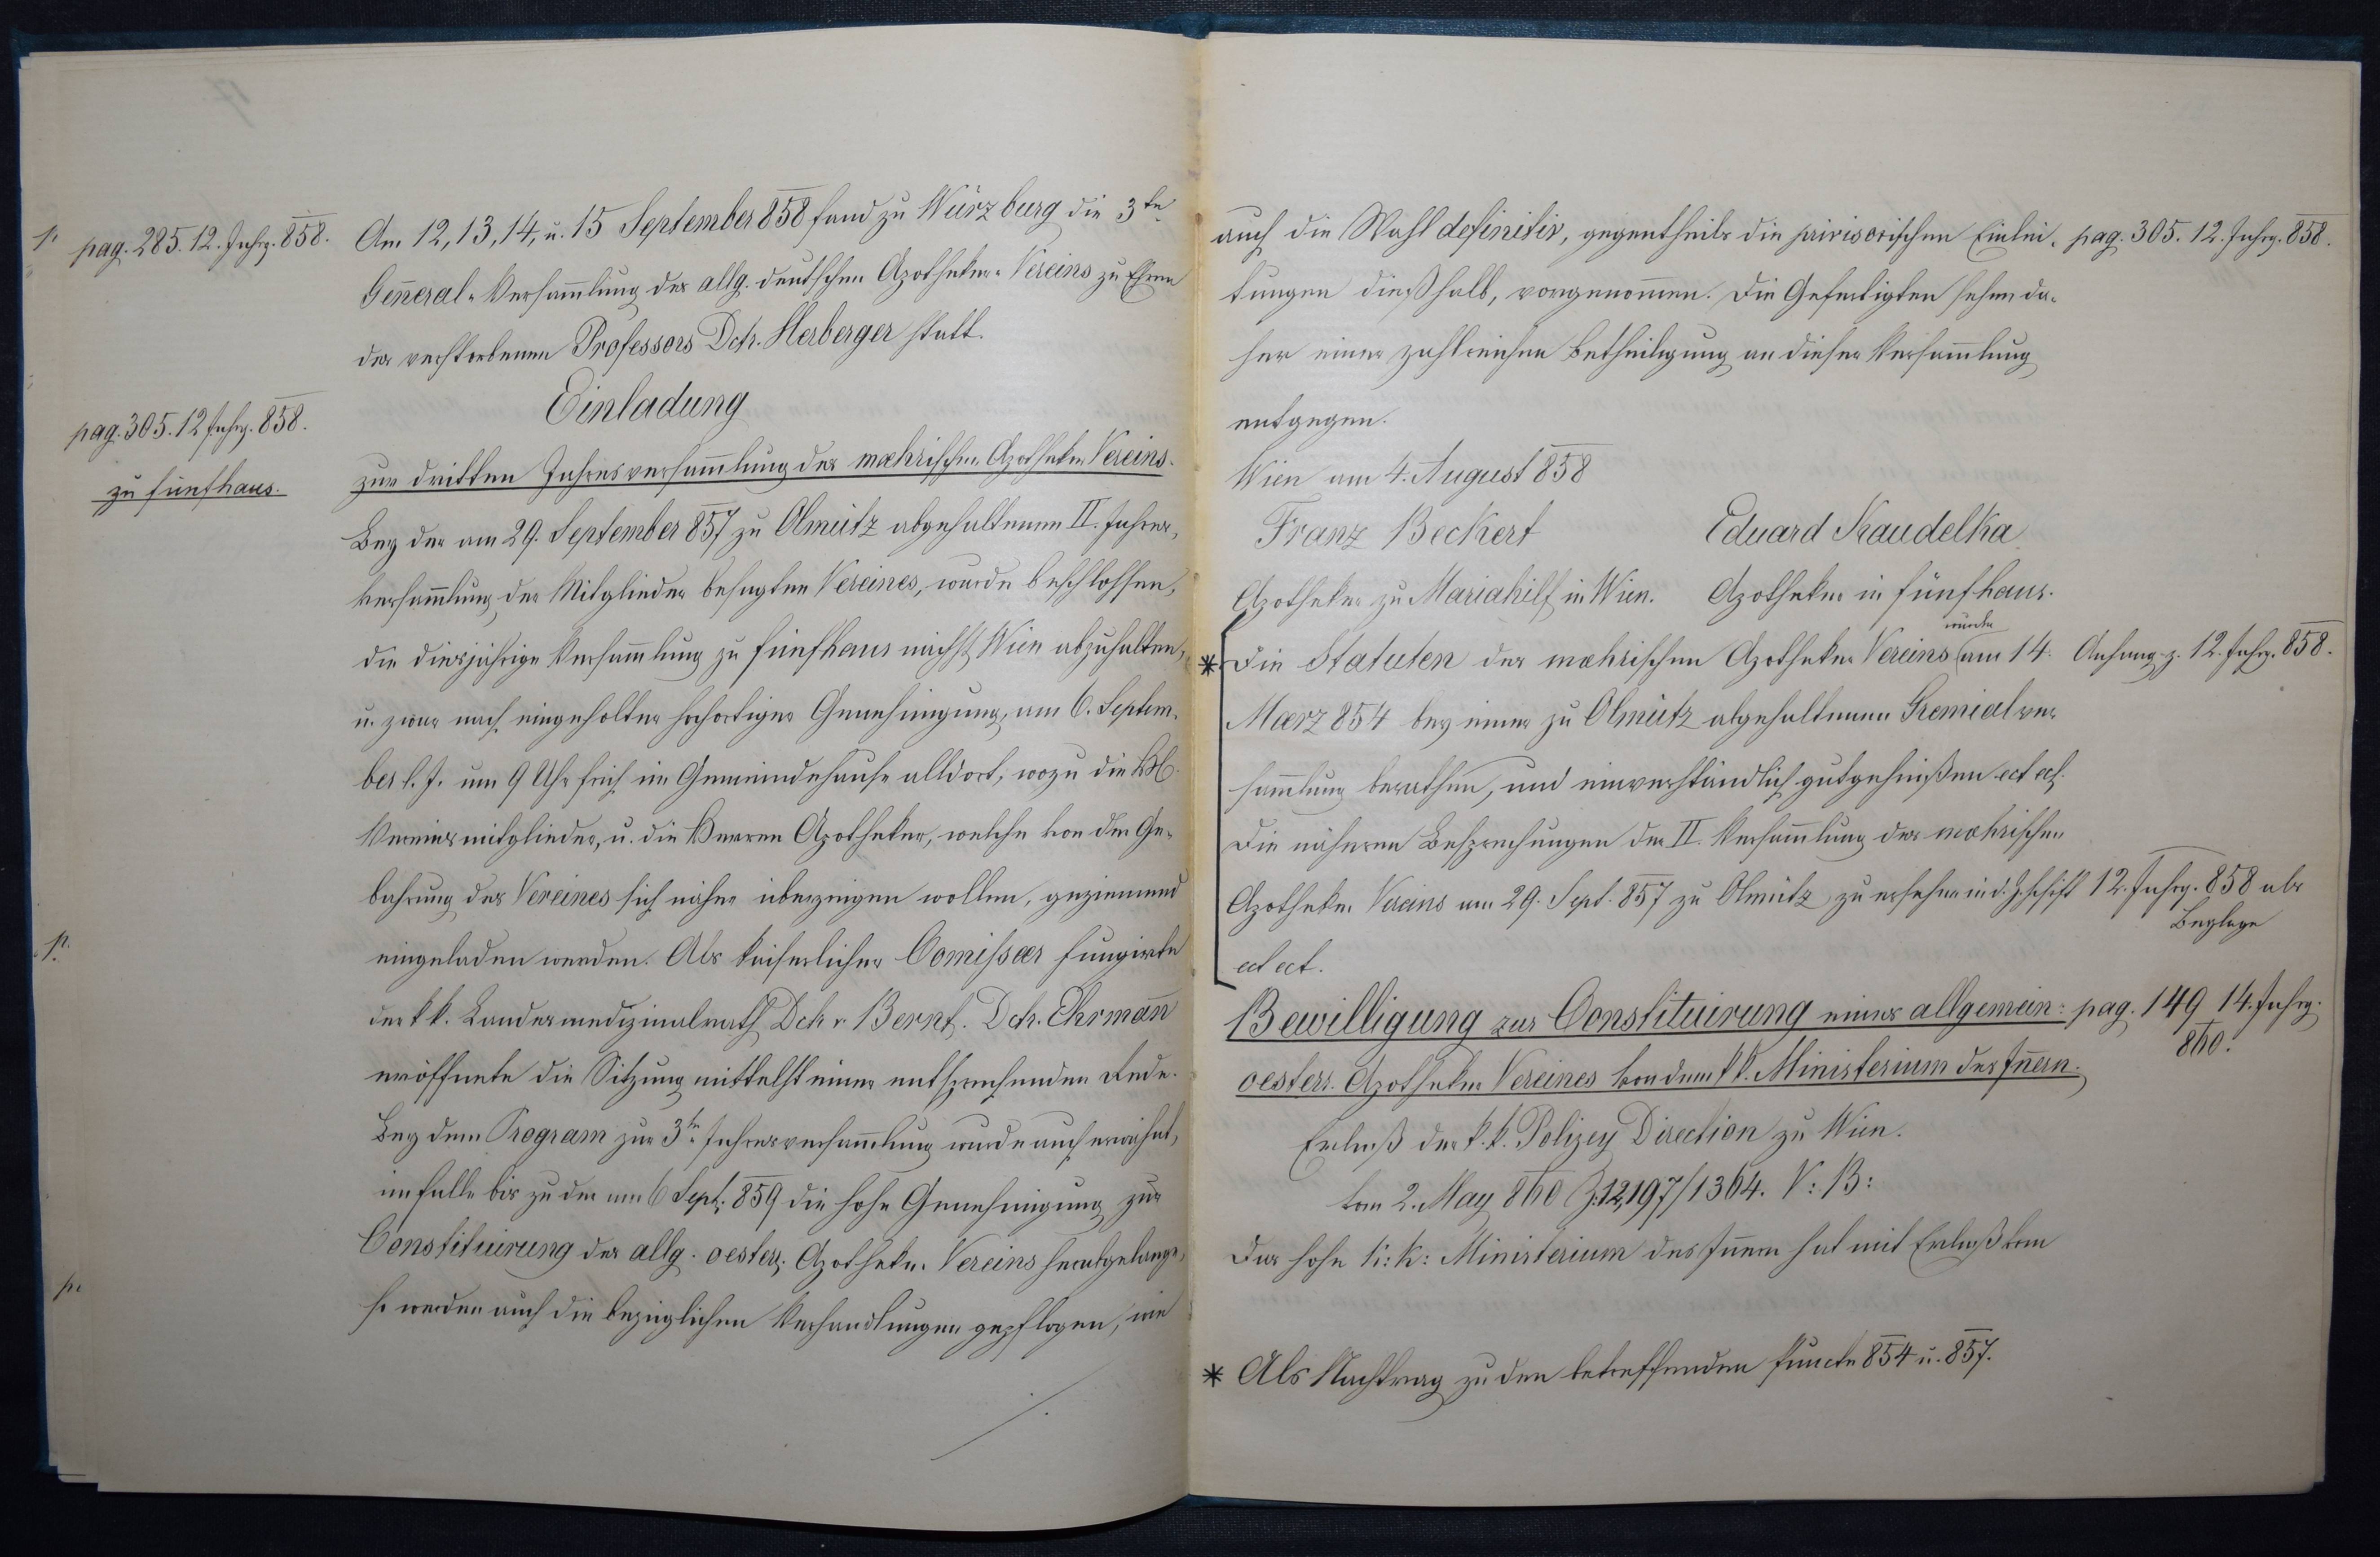 pag. 285. 12. Jahrg. 858.
Am 12, 13, 14, u. 15 September 858 fand zu Würzburg die 3te
General-Versam̄lung des allg. deutschen Apotheker-Vereins zu Ehren
des verstorbenen Professors Dctr. Herberger statt.
Einladung
pag. 305. 12 Jahrg. 858.
zu Fünfhaus.
zur dritten Jahresversam̄lung des mæhrischen Apotheker Vereins.
Bey der am 29. September 857 zu Olmütz abgehaltenen II. Jahres-
versam̄lung der Mitglieder besagten Vereines, wurde beschlossen,
die diesjährige Versam̄lung zu Fünfhaus nächst Wien abzuhalten,
u. zwar nach eingeholter hochortiger Genehmigung, am 6. Septem-
ber l. J. um 9 Uhr früh im Gemeindehause alldort, wozu die HH.
Vereinsmitglieder, u. die Herren Apotheker, welche von der Ge-
bahrung des Vereines sich näher überzeigen wollen, geziemend
eingeladen werden. Als kaiserlicher Com̄issær fungirte
der k k. Landesmedizinalrath Dctr v Bernt. Dctr. Ehrman̄
eröffnete die Sitzung mittelst einer entsprechenden Rede.
Bey dem Program zur 3te Jahresversam̄lung wurde auch erwähnt,
im falle bis zu der am 6 Sept: 859 die hohe Genehmigung zur
Constituirung des allg. oesterr. Apotheker Vereins herabgelange,
so werden auch die bezüglichen Verhandlungen gepflogen, wie
./.
auch die Wahl definitiv, gegentheils die privisorischen Einlei- pag. 305. 12. Jahrg. 858.
tungen dießhalb, vorgenom̄en. Die Gefertigten sehen da-
her einer zahlreichen Betheiligung an dieser Versam̄lung
entgegen.
Wien am 4. August 858
Franz Beckert Eduard Kaudelka
Apotheker zu Mariahilf in Wien. Apotheker in Fünfhaus.
wurden
* Die Statuten des mæhrischen Apotheker Vereins am 14. Anhang z. 12. Jahrg. 858.
Mærz 854 bey einer zu Olmütz abgehaltenen Gremialver-
sam̄lung berathen, und einverständlich gutgeheißen ect ect.
Die näheren Besprechungen der II. Versam̄lung des mæhrischen
Apotheker Vereins am 29. Sept. 857 zu Olmütz zu ersehen in d. Zschrift 12. Jahrg. 858 als
Beylage
ect ect.
Bewilligung zur Constituirung eines allgemein: pag. 149 14. Jahrg.
860.
oesterr. Apotheker Vereines von dem k k. Ministerium des In̄ern.
Erlaß der k. k. Polizey Direction zu Wien.
vom 2. May 860 Z. 12,197/1364. V: B:
Das hohe K: K: Ministerium des In̄ern hat mit Erlaß vom
* Als Nachtrag zu den betreffenden Puncte 854 u. 857.